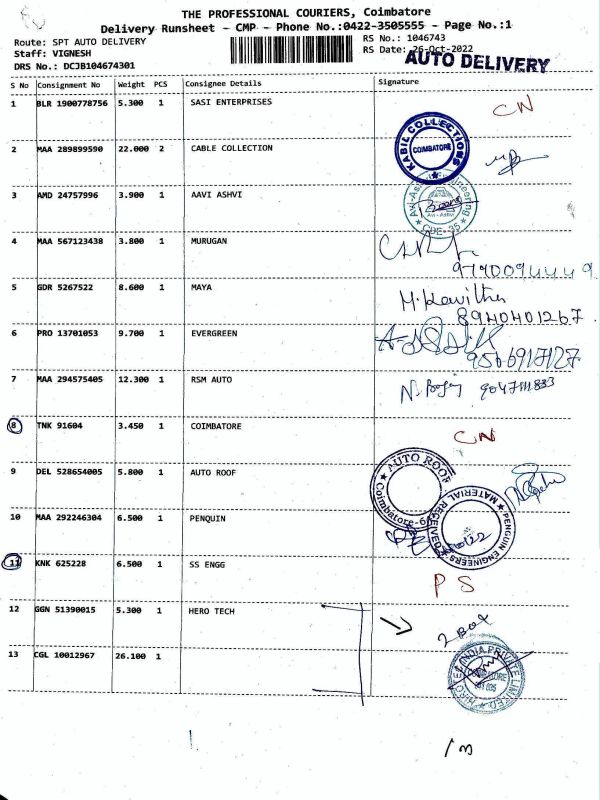 THE PROFESSIONAL COURIERS, Coimbatore
Delivery Runsheet - CMP - Phone No.:0422-3505555 - Page No.:1
Route: SPT AUTO DELIVERY
RS No.: 1046743
Staff: VIGNESH
RS Date: 26-Oct-2022
DRS No.: DCJB104674301
AUTO DELIVERY
S No Consignment No Weight PCS Consignee Details Signature
1 BLR 1900778756 5.300 1 SASI ENTERPRISES CN
2 MAA 289899590 22.000 2 CABLE COLLECTION
KABIL COLLECTIONS
COIMBATORE
3 AMD 24757996 3.900 1 AAVI ASHVI
Avi-Ashvi
CBE-35
4 MAA 567123438 3.800 1 MURUGAN
9790094449
5 GDR 5267522 8.600 1 MAYA
M. Kavitha
8940401267
6 PRO 13701053 9.700 1 EVERGREEN
9566917127
7 MAA 294575405 12.300 1 RSM AUTO
9047111833
8 TNK 91604 3.450 1 COIMBATORE CN
9 DEL 528654005 5.800 1 AUTO ROOF
AUTO ROOF
10 MAA 292246304 6.500 1 PENQUIN
PENGUIN ENGINEERS
MATERIAL RECEIVED
11 KNK 625228 6.500 1 SS ENGG PS
12 GGN 51390015 5.300 1 HERO TECH
2 Box
13 CGL 10012967 26.100 1
INDIA PRIVATE LIMITED